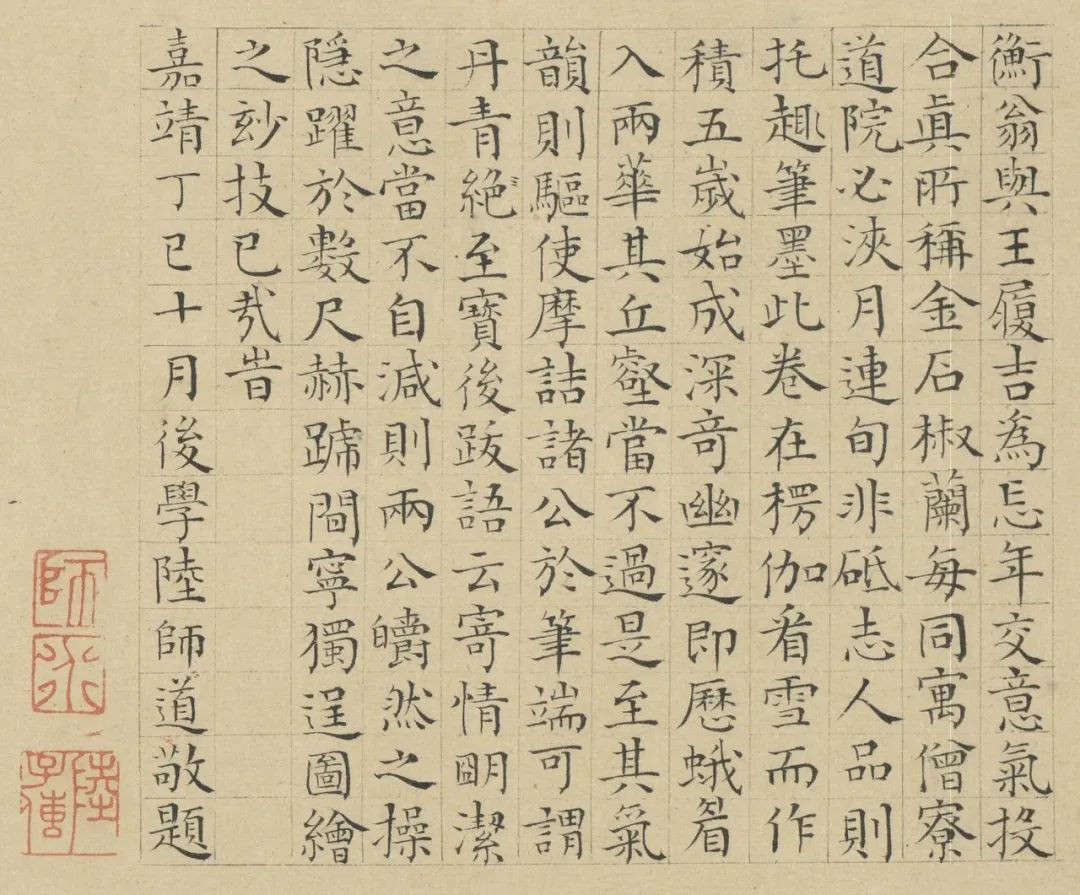 衡翁與王履吉為忘年交意氣投
合眞所稱金石椒蘭每同寓僧寮
道院必浹月連旬非砥志人品則
托趣筆墨此卷在楞伽看雪而作
積五歲始成深奇幽邃即歷蛾眉
入兩華其丘壑當不過是至其氣
韻則驅使摩詰諸公於筆端可謂
丹青絕至寶後跋語云寄情明潔
之意當不自減則兩公皭然之操
隱躍於數尺赫蹏間寧獨逞圖繪
之玅技已哉旹
嘉靖丁巳十月後學陸師道敬題
陸子傳